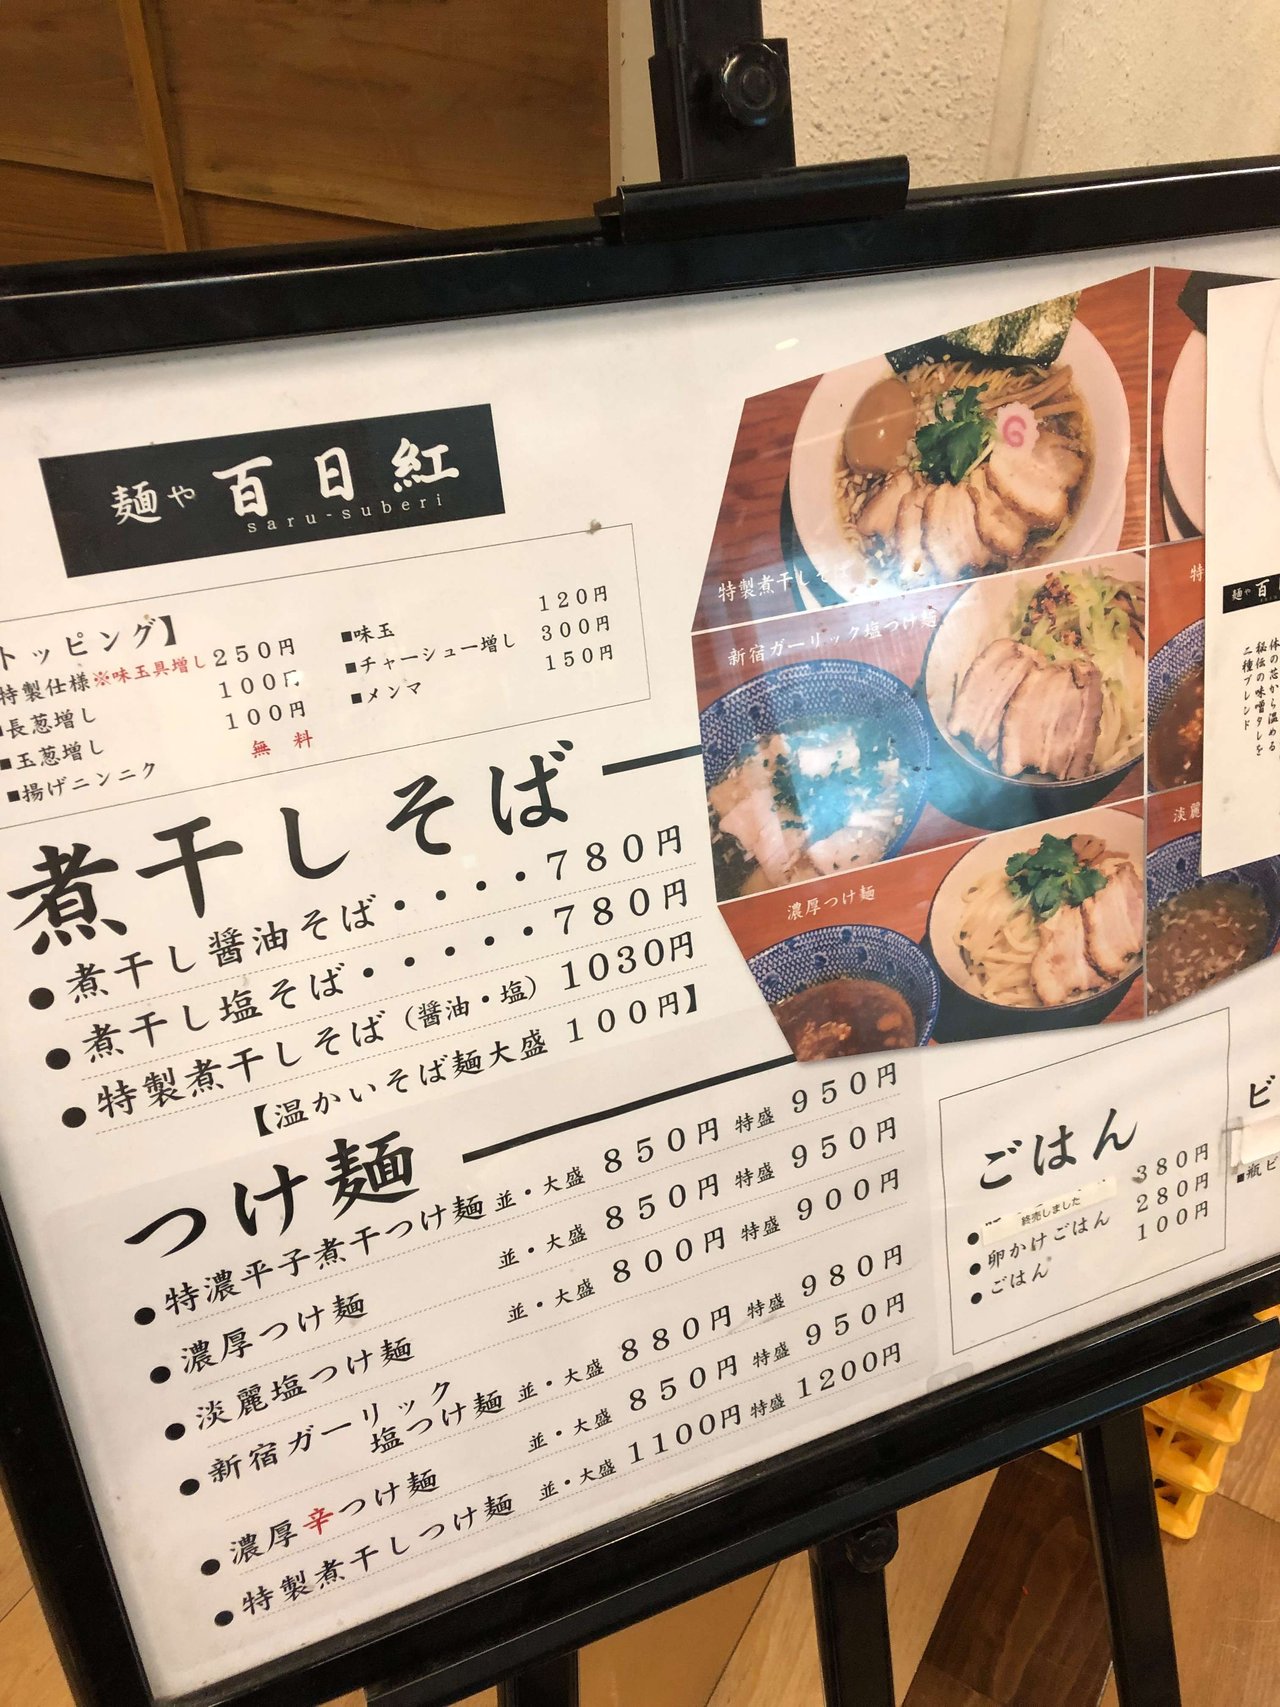 麺や 百日紅
saru-suberi
トッピング】
特製仕様※味玉具増し 250円
■長葱増し 100円
■玉葱増し 100円
■揚げニンニク 無料
■味玉 120円
■チャーシュー増し 300円
■メンマ 150円
煮干しそば
●煮干し醤油そば・・・・780円
●煮干し塩そば・・・・・780円
●特製煮干しそば（醤油・塩）1030円
【温かいそば麺大盛 100円】
つけ麺
●特濃平子煮干つけ麺 並・大盛 850円 特盛 950円
●濃厚つけ麺 並・大盛 850円 特盛 950円
●淡麗塩つけ麺 並・大盛 800円 特盛 900円
●新宿ガーリック
塩つけ麺 並・大盛 880円 特盛 980円
●濃厚辛つけ麺 並・大盛 850円 特盛 950円
●特製煮干しつけ麺 並・大盛 1100円 特盛 1200円
特製煮干しそば
新宿ガーリック塩つけ麺
濃厚つけ麺
特
淡麗
麺や 百日
体の芯から温める
秘伝の味噌タレを
二種ブレンド
ごはん
● 終売しました 380円
●卵かけごはん 280円
●ごはん 100円
ビ
■瓶ビ